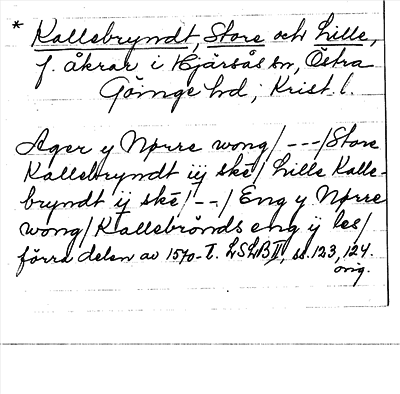 * Kallebryndt, Store och Lille,
f. åkrar i Hjärsås sn, Östra
Göinge hd, Krist. l.
Ager y Nørre wong/ ---/Store
Kallebryndt iij skē/ Lille Kalle-
bryndt ij skē/--/ Eng y Nørre
wong/ Kallebrönds eng ij les/
förra delen av 1570-t. LSLB IV, ss. 123, 124.
orig.